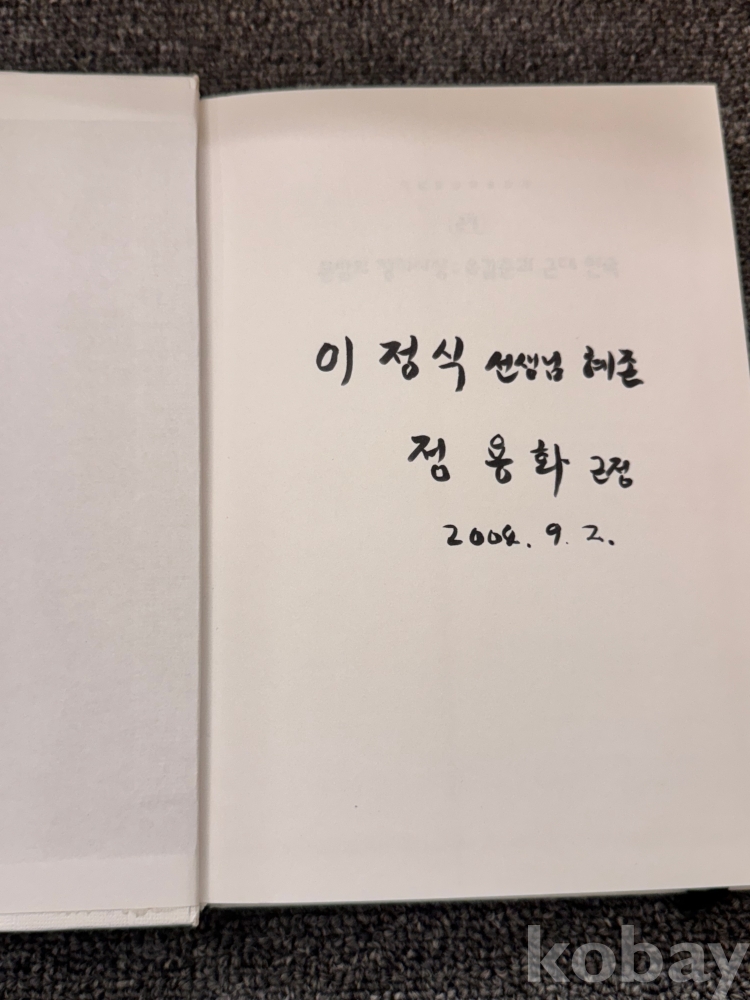 이 정식 선생님 혜존
정 용화 근정
2004. 9. 2.
kobay